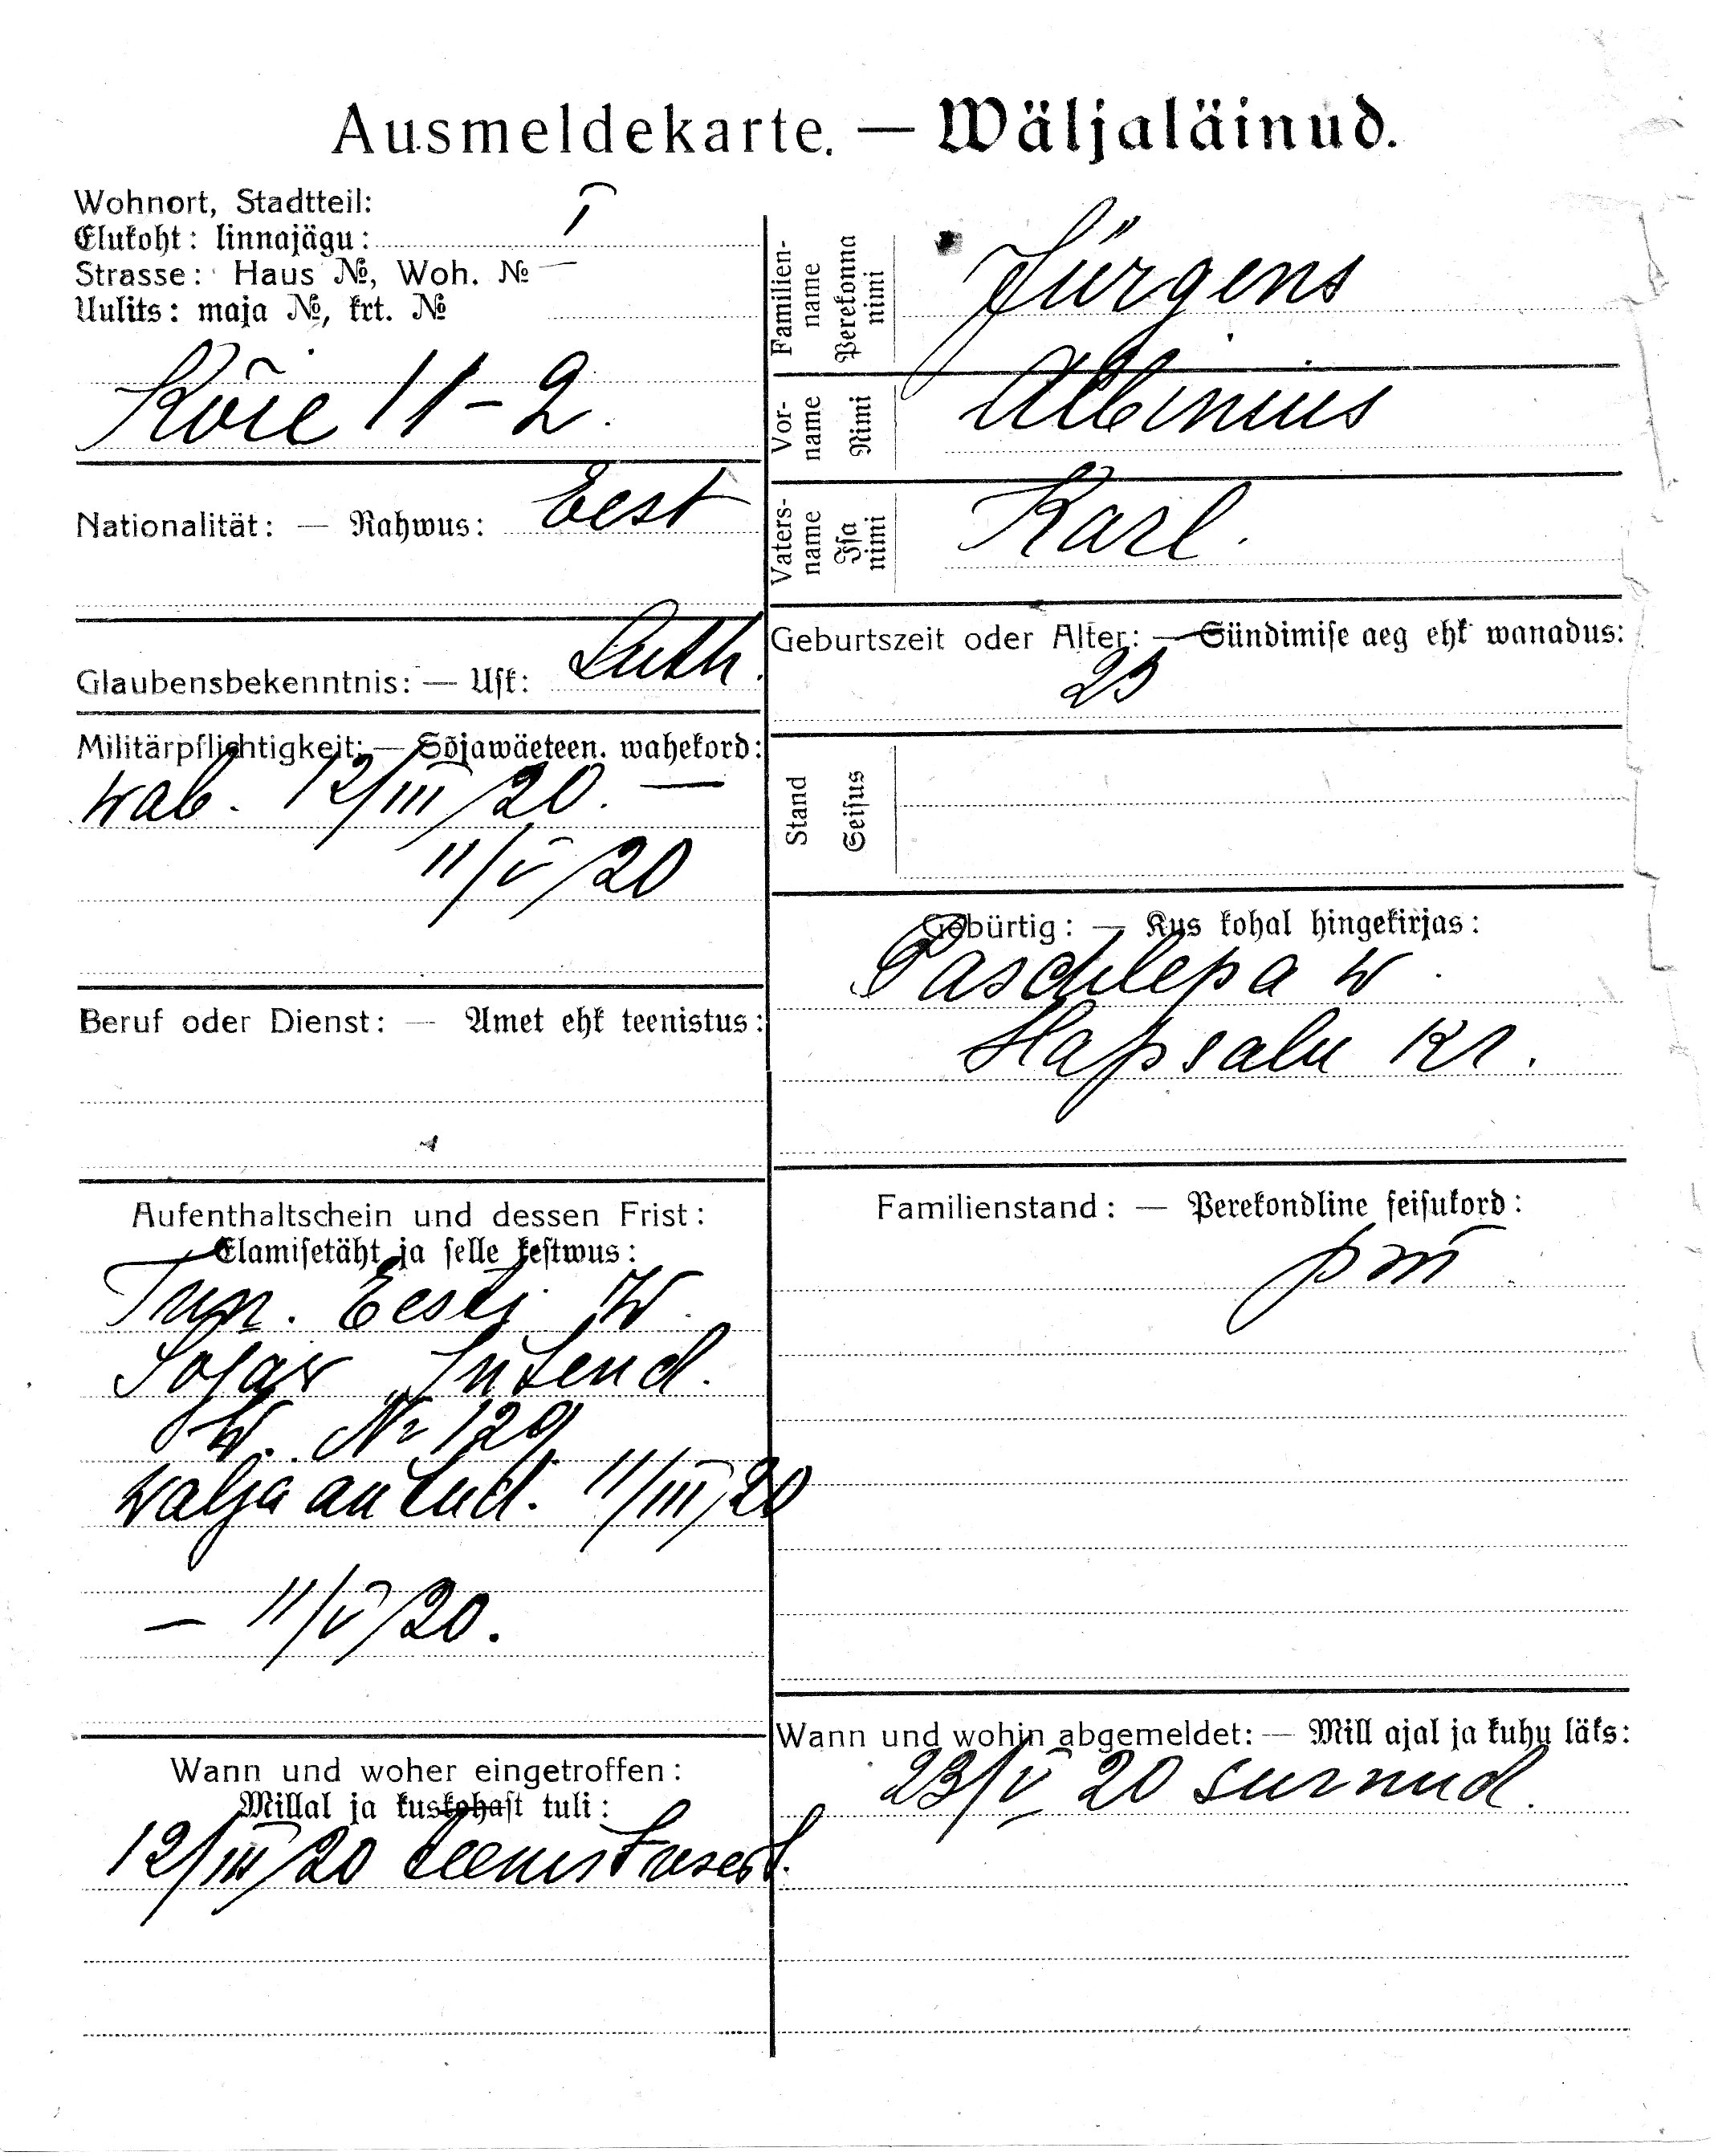 Ausmeldekarte. — Wäljaläinud.
Wohnort, Stadtteil:
Elukoht: linnajägu: I
Strasse: Haus №, Woh. № —
Uulits: maja №, krt. №
Kõie 11-2.
Nationalität: — Rahwus: Eest
Glaubensbekenntnis: — Usk: Luth.
Militärpflichtigkeit: — Sõjawäeteen. wahekord:
wab. 12/III/20. —
11/V/20
Beruf oder Dienst: — Amet ehk teenistus:
Aufenthaltschein und dessen Frist:
Elamisetäht ja selle kestwus:
Tun. Eesti W.
Sojaw Intend.
W. № 129
walja antud. 11/III/20
— 11/V/20.
Wann und woher eingetroffen:
Millal ja kuskohast tuli:
12/III/20 teenistusest.
Familien-
name
Perekonna
nimi
Jürgens
Vor-
name
Nimi
Albinius
Vaters-
name
Isa
nimi
Karl.
Geburtszeit oder Alter: — Sündimise aeg ehk wanadus:
25
Stand
Seisus
Gebürtig: — Kus kohal hingekirjas:
Paschlepa w.
Hapsalu kr.
Familienstand: — Perekondline seisukord:
Wann und wohin abgemeldet: — Mill ajal ja kuhu läks:
23/V 20 surnud.